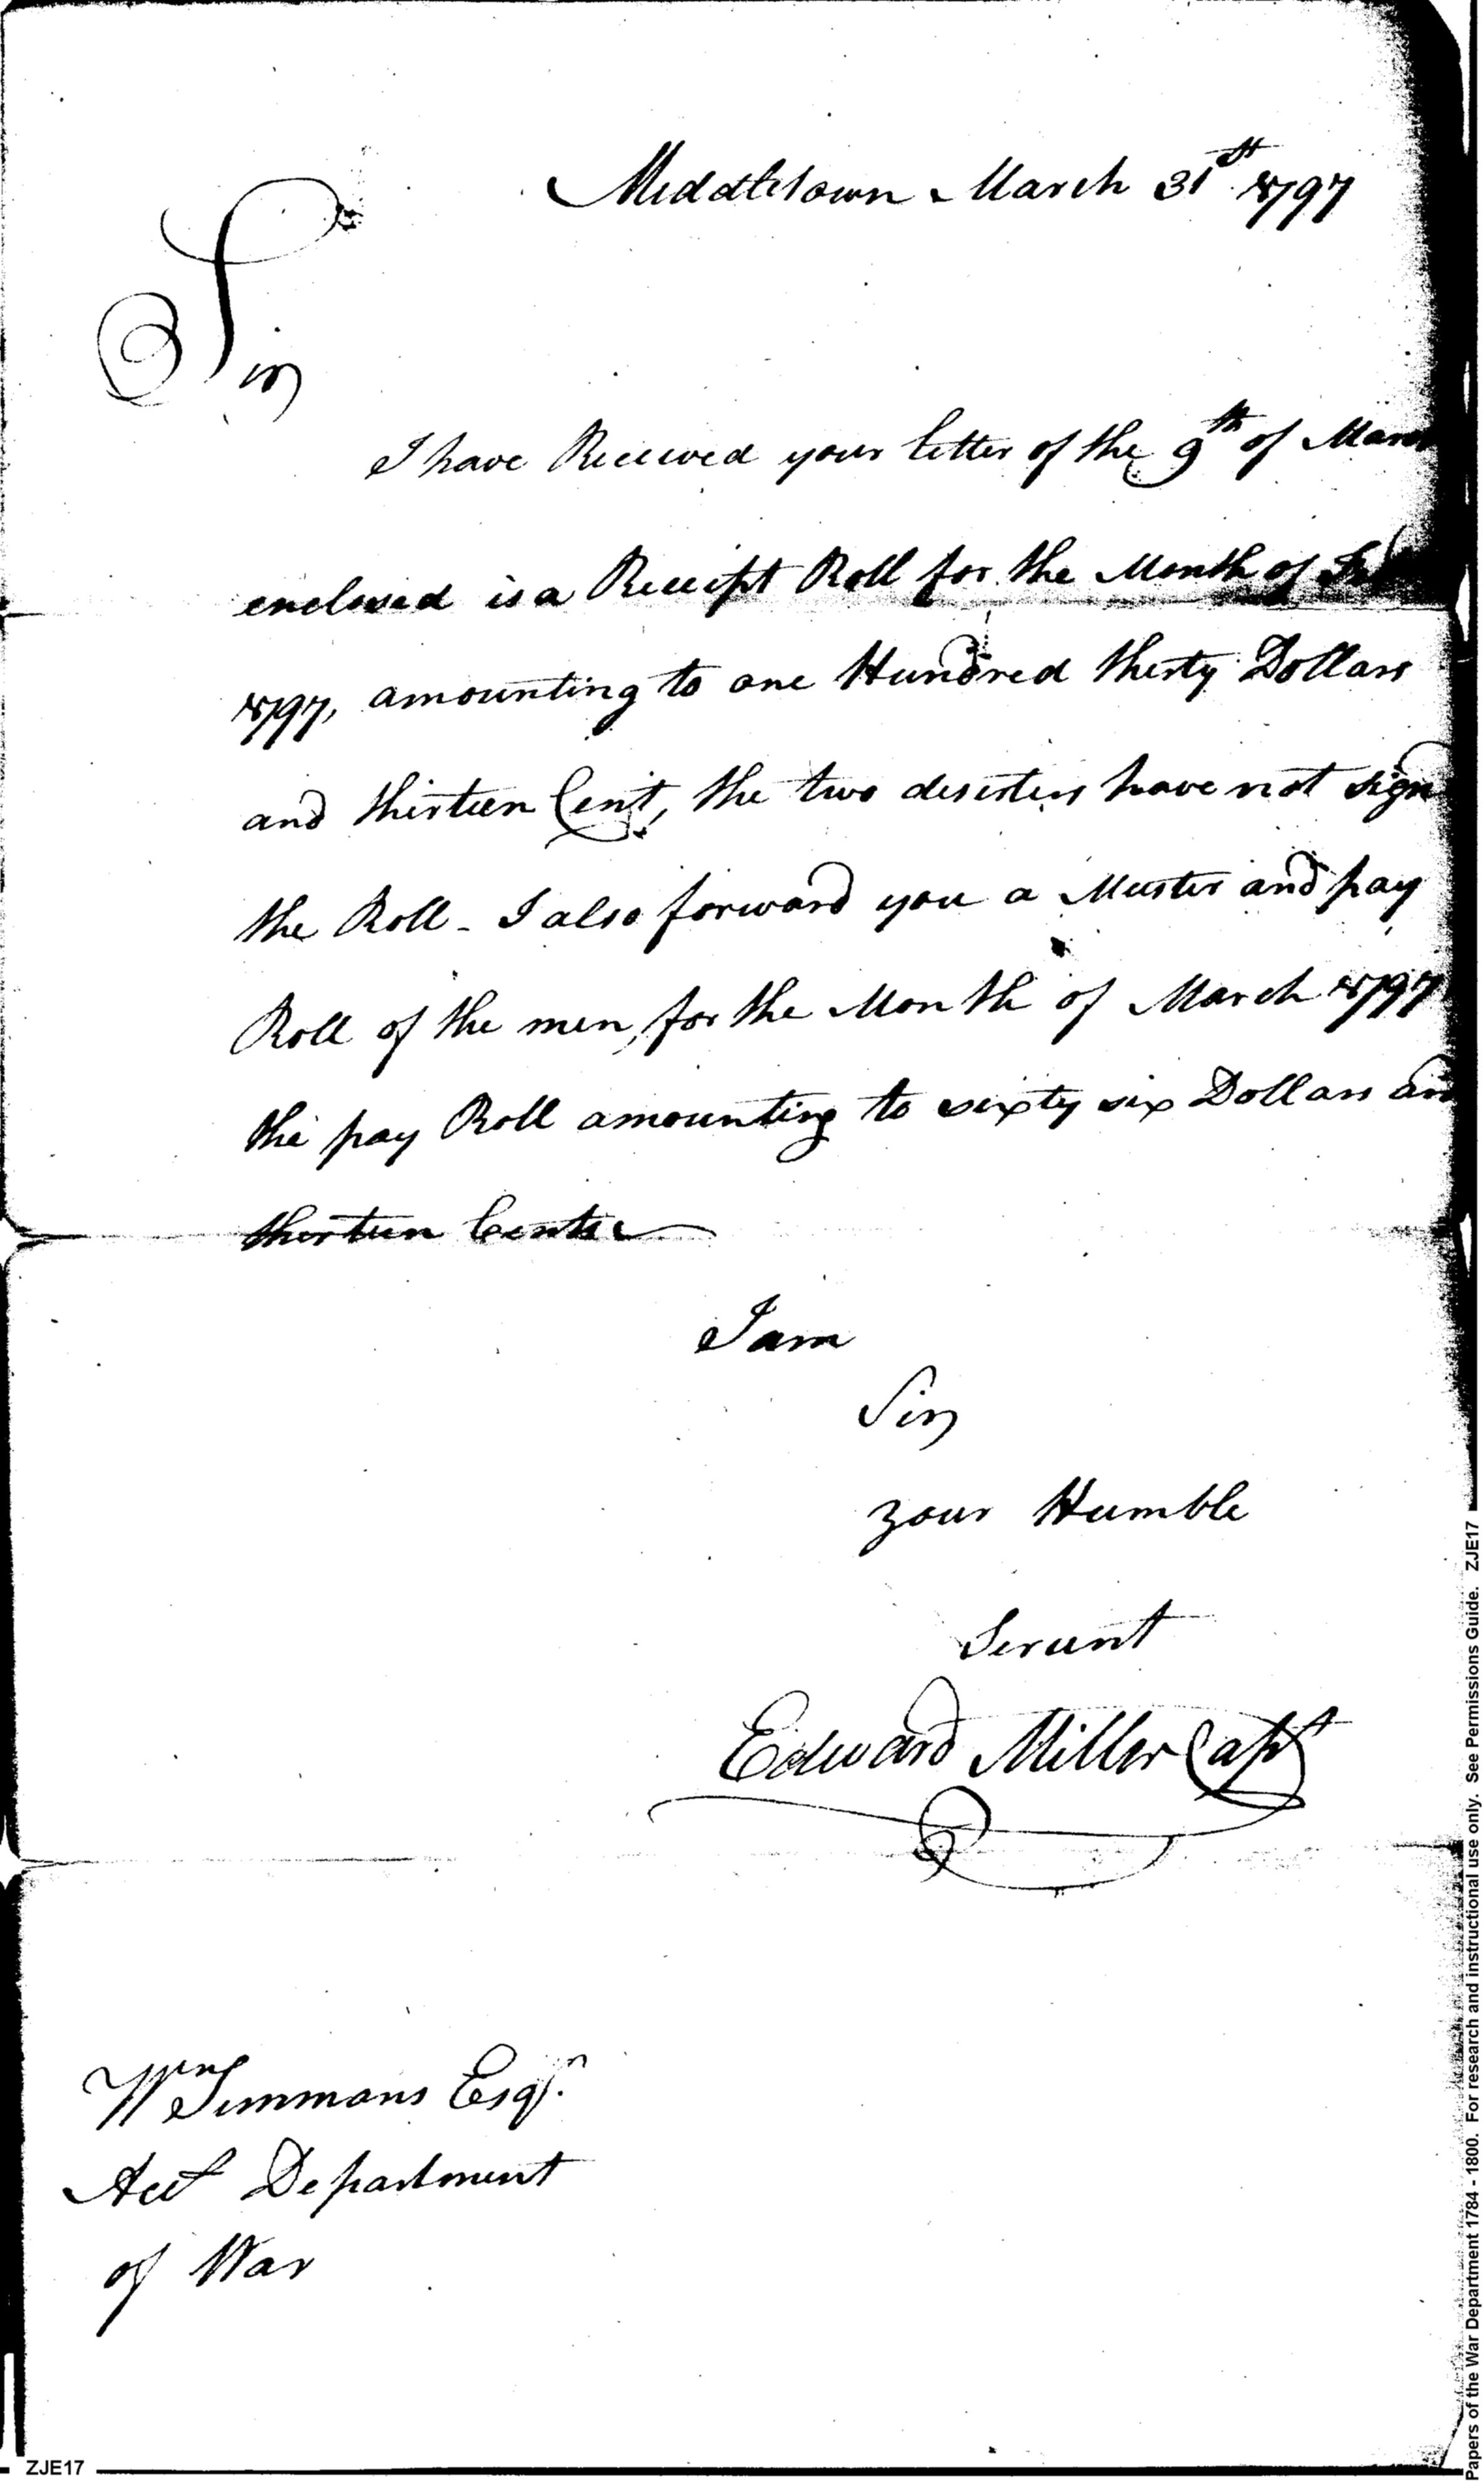 Middletown March 31st 1797
Sir
I have Received your letter of the 9th of March
enclosed is a Receipt Roll for the Month of
1797, amounting to one Hundred thirty Dollars
and thirteen Cent, the two deserters have not sign
the Roll - I also forward you a Muster and pay
Roll of the men, for the Month of March 1797
the pay Roll amounting to sixty six Dollars an
thirteen Cents
I am
Sir
your Humble
Servant
Edward Miller Capt
Wm Simmons Esqr.
Acct Department
of War
ZJE17
Papers of the War Department 1784 - 1800. For research and instructional use only. See Permissions Guide. ZJE17